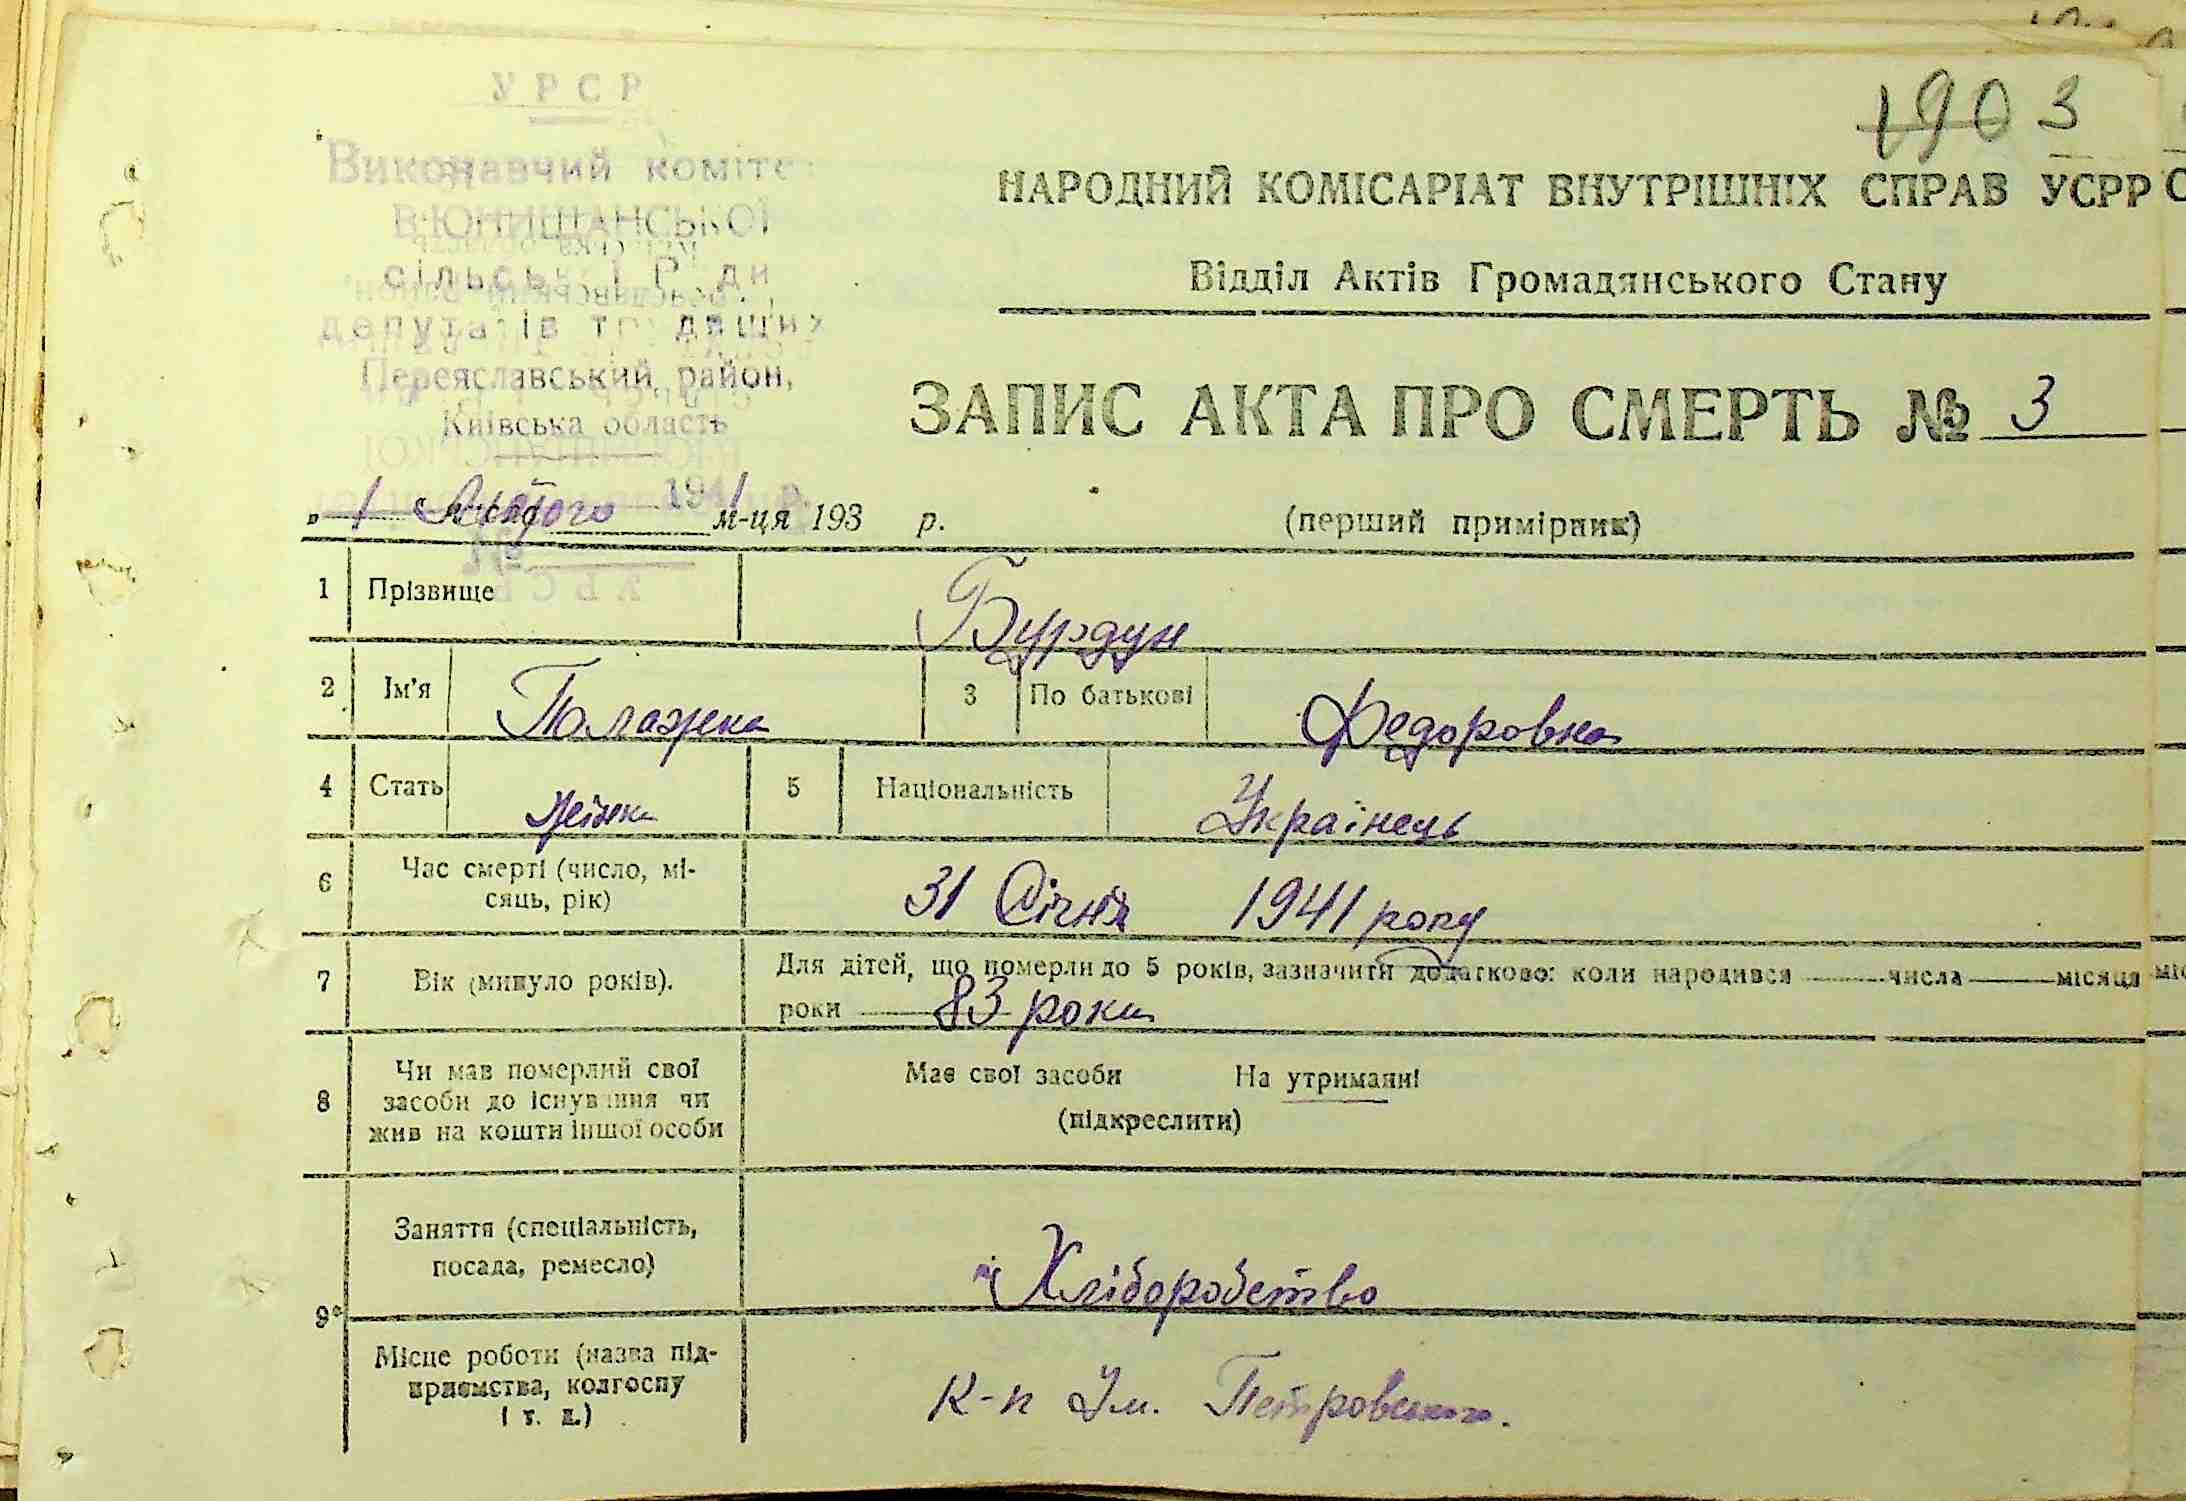 1903
УРСР
Виконавчий коміте
В'ЮНИЩАНСЬКОЇ
депутатів
Переяславський район,
Київська область
НАРОДНИЙ КОМІСАРІАТ ВНУТРІШНІХ СПРАВ УСРР
Відділ Актів Громадянського Стану
ЗАПИС АКТА ПРО СМЕРТЬ № 3
„ 1 “ Лютого 1941 р. м-ця 193 р.
(перший примірник)
1 Прізвище Бурдун
2 Ім'я Полажка 3 По батькові Федоровна
4 Стать Жінка 5 Національність Українець
6 Час смерті (число, мі-
сяць, рік) 31 Січня 1941 року
7 Вік (минуло років). Для дітей, що померли до 5 років, зазначити додатково: коли народився числа місяця
роки 83 роки
8 Чи мав померлий свої
засоби до існування чи
жив на кошти іншої особи
Має свої засоби На утриманні
(підкреслити)
9 Заняття (спеціальність,
посада, ремесло) Хліборобство
Місце роботи (назва під-
приємства, колгоспу
і т. д.) К-п Ім. Петровського.